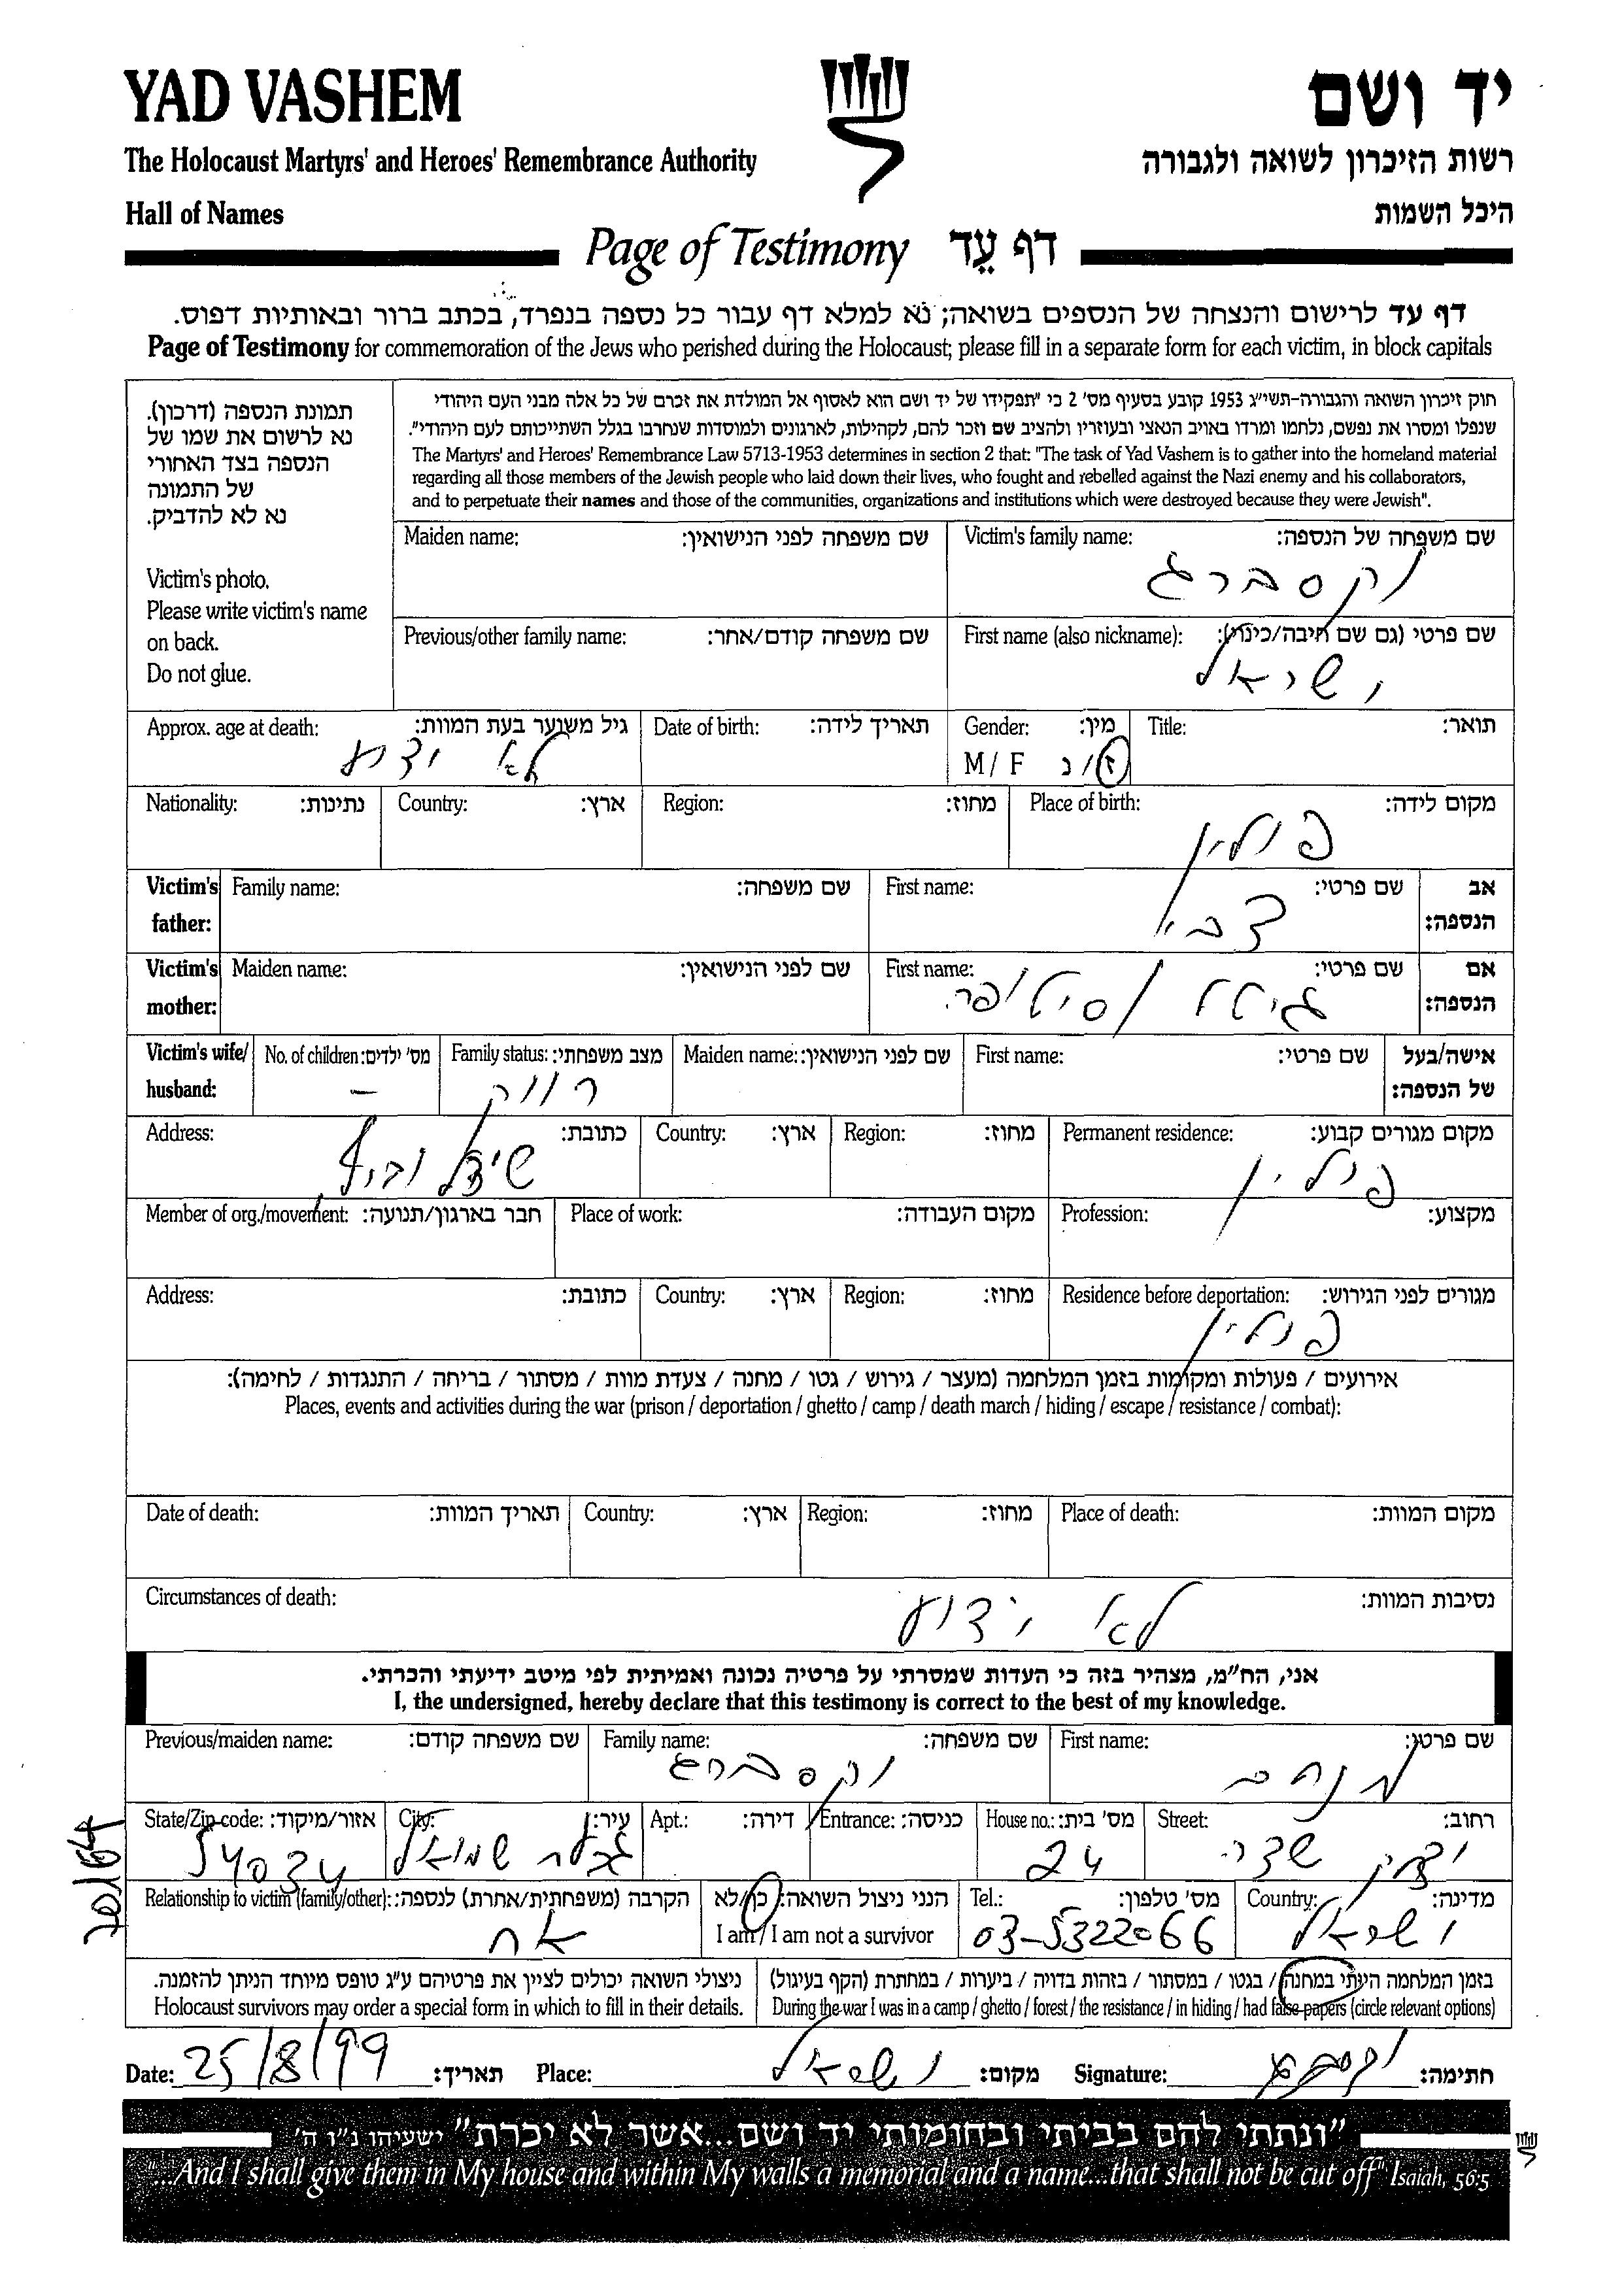 YAD VASHEM
יד ושם
The Holocaust Martyrs' and Heroes' Remembrance Authority
רשות הזיכרון לשואה ולגבורה
Hall of Names
היכל השמות
Page of Testimony דף עֵד
דף עד לרישום והנצחה של הנספים בשואה; נא למלא דף עבור כל נספה בנפרד, בכתב ברור ובאותיות דפוס.
Page of Testimony for commemoration of the Jews who perished during the Holocaust; please fill in a separate form for each victim, in block capitals
תמונת הנספה (דרכון).
נא לרשום את שמו של
הנספה בצד האחורי
של התמונה
נא לא להדביק.
Victim's photo.
Please write victim's name
on back.
Do not glue.
חוק זיכרון השואה והגבורה-תשי"ג 1953 קובע בסעיף מס' 2 כי "תפקידו של יד ושם הוא לאסוף אל המולדת את זכרם של כל אלה מבני העם היהודי
שנפלו ומסרו את נפשם, נלחמו ומרדו באויב הנאצי ובעוזריו ולהציב שם וזכר להם, לקהילות, לארגונים ולמוסדות שנחרבו בגלל השתייכותם לעם היהודי".
The Martyrs' and Heroes' Remembrance Law 5713-1953 determines in section 2 that: "The task of Yad Vashem is to gather into the homeland material
regarding all those members of the Jewish people who laid down their lives, who fought and rebelled against the Nazi enemy and his collaborators,
and to perpetuate their names and those of the communities, organizations and institutions which were destroyed because they were Jewish".
Maiden name: שם משפחה לפני הנישואין: Victim's family name: שם משפחה של הנספה:
וקסברג
Previous/other family name: שם משפחה קודם/אחר: First name (also nickname): שם פרטי (גם שם חיבה/כינוי):
ישראל
Approx. age at death: גיל משוער בעת המוות: Date of birth: תאריך לידה: Gender: מין: Title: תואר:
לא ידוע M / F ז/נ
Nationality: נתינות: Country: ארץ: Region: מחוז: Place of birth: מקום לידה:
פולין
Victim's father: Family name: שם משפחה: First name: שם פרטי: אב הנספה:
צבי
Victim's mother: Maiden name: שם לפני הנישואין: First name: שם פרטי: אם הנספה:
גיטל
Victim's wife/ husband: No. of children: מס' ילדים: Family status: מצב משפחתי: Maiden name: שם לפני הנישואין: First name: שם פרטי: אישה/בעל של הנספה:
– רווק
Address: כתובת: Country: ארץ: Region: מחוז: Permanent residence: מקום מגורים קבוע:
פולין
Member of org./movement: חבר בארגון/תנועה: Place of work: מקום העבודה: Profession: מקצוע:
Address: כתובת: Country: ארץ: Region: מחוז: Residence before deportation: מגורים לפני הגירוש:
פולין
אירועים / פעולות ומקומות בזמן המלחמה (מעצר / גירוש / גטו / מחנה / צעדת מוות / מסתור / בריחה / התנגדות / לחימה):
Places, events and activities during the war (prison / deportation / ghetto / camp / death march / hiding / escape / resistance / combat):
Date of death: תאריך המוות: Country: ארץ: Region: מחוז: Place of death: מקום המוות:
Circumstances of death: נסיבות המוות:
לא ידוע
אני, הח"מ, מצהיר בזה כי העדות שמסרתי על פרטיה נכונה ואמיתית לפי מיטב ידיעתי והכרתי.
I, the undersigned, hereby declare that this testimony is correct to the best of my knowledge.
Previous/maiden name: שם משפחה קודם: Family name: שם משפחה: First name: שם פרטי:
וקסברג מנחם
State/Zip code: אזור/מיקוד: City: עיר: Apt.: דירה: Entrance: כניסה: House no.: מס' בית: Street: רחוב:
54034 גבעת שמואל 24 יצחק שדה
Relationship to victim (family/other): הקרבה (משפחתית/אחרת) לנספה: הנני ניצול השואה: כן/לא Tel.: מס' טלפון: Country: מדינה:
אח I am / I am not a survivor 03-5322066 ישראל
ניצולי השואה יכולים לציין את פרטיהם ע"ג טופס מיוחד הניתן להזמנה. בזמן המלחמה הייתי במחנה / בגטו / במסתור / בזהות בדויה / ביערות / במחתרת (הקף בעיגול)
Holocaust survivors may order a special form in which to fill in their details. During the war I was in a camp / ghetto / forest / the resistance / in hiding / had false papers (circle relevant options)
Date: 25/8/99 תאריך: Place: ישראל מקום: Signature: חתימה:
"ונתתי להם בביתי ובחומותי יד ושם...אשר לא יכרת" ישעיהו נ"ו ה'
"...And I shall give them in My house and within My walls a memorial and a name...that shall not be cut off" Isaiah, 56:5